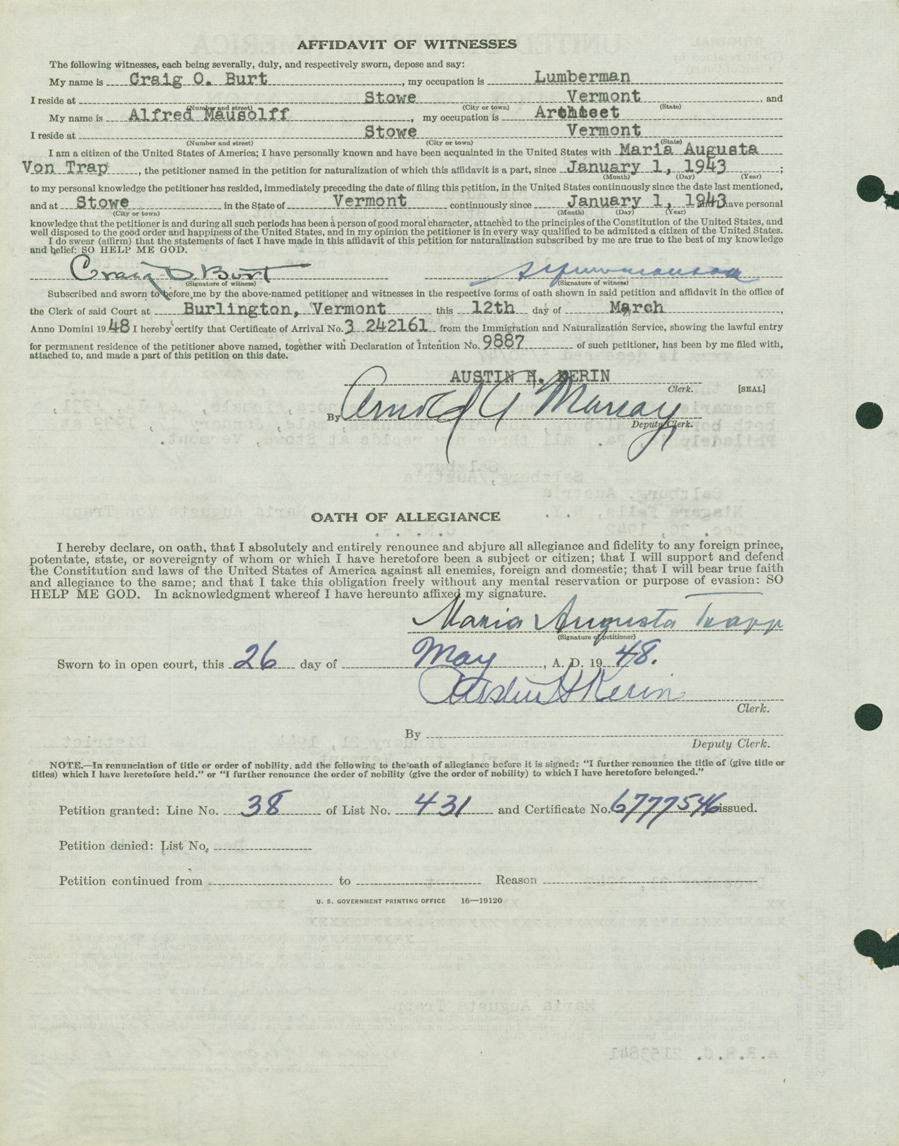 AFFIDAVIT OF WITNESSES
The following witnesses, each being severally, duly, and respectively sworn, depose and say:
My name is Craig O. Burt, my occupation is Lumberman
I reside at Stowe Vermont and
(Number and street) (City or town) (State)
My name is Alfred Mausolff, my occupation is
I reside at Stowe Vermont
(Number and street) (City or town) (State)
I am a citizen of the United States of America; I have personally known and have been acquainted in the United States with Maria Augusta
Von Trap, the petitioner named in the petition for naturalization of which this affidavit is a part, since January 1, 1943;
(Month) (Day) (Year)
to my personal knowledge the petitioner has resided, immediately preceding the date of filing this petition, in the United States continuously since the date last mentioned,
and at Stowe in the State of Vermont continuously since January 1, 1943 and have personal
(City or town) (Month) (Day) (Year)
knowledge that the petitioner is and during all such periods has been a person of good moral character, attached to the principles of the Constitution of the United States, and
well disposed to the good order and happiness of the United States, and in my opinion the petitioner is in every way qualified to be admitted a citizen of the United States.
I do swear (affirm) that the statements of fact I have made in this affidavit of this petition for naturalization subscribed by me are true to the best of my knowledge
and belief: SO HELP ME GOD.
Craig O. Burt
(Signature of witness) (Signature of witness)
Subscribed and sworn to before me by the above-named petitioner and witnesses in the respective forms of oath shown in said petition and affidavit in the office of
the Clerk of said Court at Burlington, Vermont this 12th day of March,
Anno Domini 1948 I hereby certify that Certificate of Arrival No. 3 242161 from the Immigration and Naturalization Service, showing the lawful entry
for permanent residence of the petitioner above named, together with Declaration of Intention No. 9887 of such petitioner, has been by me filed with,
attached to, and made a part of this petition on this date.
AUSTIN H. KERIN
Clerk. [SEAL]
By Arnold A Murray
Deputy Clerk.
OATH OF ALLEGIANCE
I hereby declare, on oath, that I absolutely and entirely renounce and abjure all allegiance and fidelity to any foreign prince,
potentate, state, or sovereignty of whom or which I have heretofore been a subject or citizen; that I will support and defend
the Constitution and laws of the United States of America against all enemies, foreign and domestic; that I will bear true faith
and allegiance to the same; and that I take this obligation freely without any mental reservation or purpose of evasion: SO
HELP ME GOD. In acknowledgment whereof I have hereunto affixed my signature.
Maria Augusta Trapp
(Signature of petitioner)
Sworn to in open court, this 26 day of May, A. D. 1948.
Austin H Kerin
Clerk.
By
Deputy Clerk.
NOTE.—In renunciation of title or order of nobility, add the following to the oath of allegiance before it is signed: "I further renounce the title of (give title or
titles) which I have heretofore held." or "I further renounce the order of nobility (give the order of nobility) to which I have heretofore belonged."
Petition granted: Line No. 38 of List No. 431 and Certificate No. 6777546 issued.
Petition denied: List No.
Petition continued from to Reason
U. S. GOVERNMENT PRINTING OFFICE 16—19120